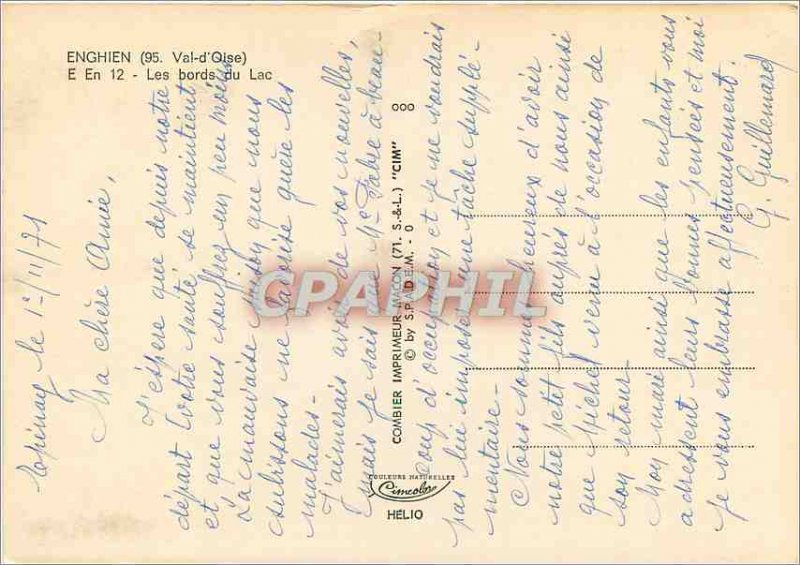 ENGHIEN (95. Val-d'Oise)
E En 12 - Les bords du Lac
Epinay le 1er/11/71
Ma chère Amie,
J'espère que depuis notre
départ votre santé se maintient
et que vous souffrez un peu moins
La mauvaise saison que nous
subissons ne favorise guère les
malades -
J'aimerais avoir de vos nouvelles,
mais je sais que Me Fabre a beau-
coup d'occupation et je ne voudrais
pas lui imposer une tâche supplé-
mentaire -
Nous sommes heureux d'avoir
notre petit fils auprès de nous ainsi
que Michel venu à l'occasion de
son retour -
Mon mari ainsi que les enfants vous
adressent leurs bonnes pensées et moi
je vous embrasse affectueusement.
G. Guillemard
COMBIER IMPRIMEUR MACON (71. S.-&-L.) "CIM"
© by S.P.A.D.E.M. - 0
000
COULEURS NATURELLES
Cimcolor
HÉLIO
CPAPHIL